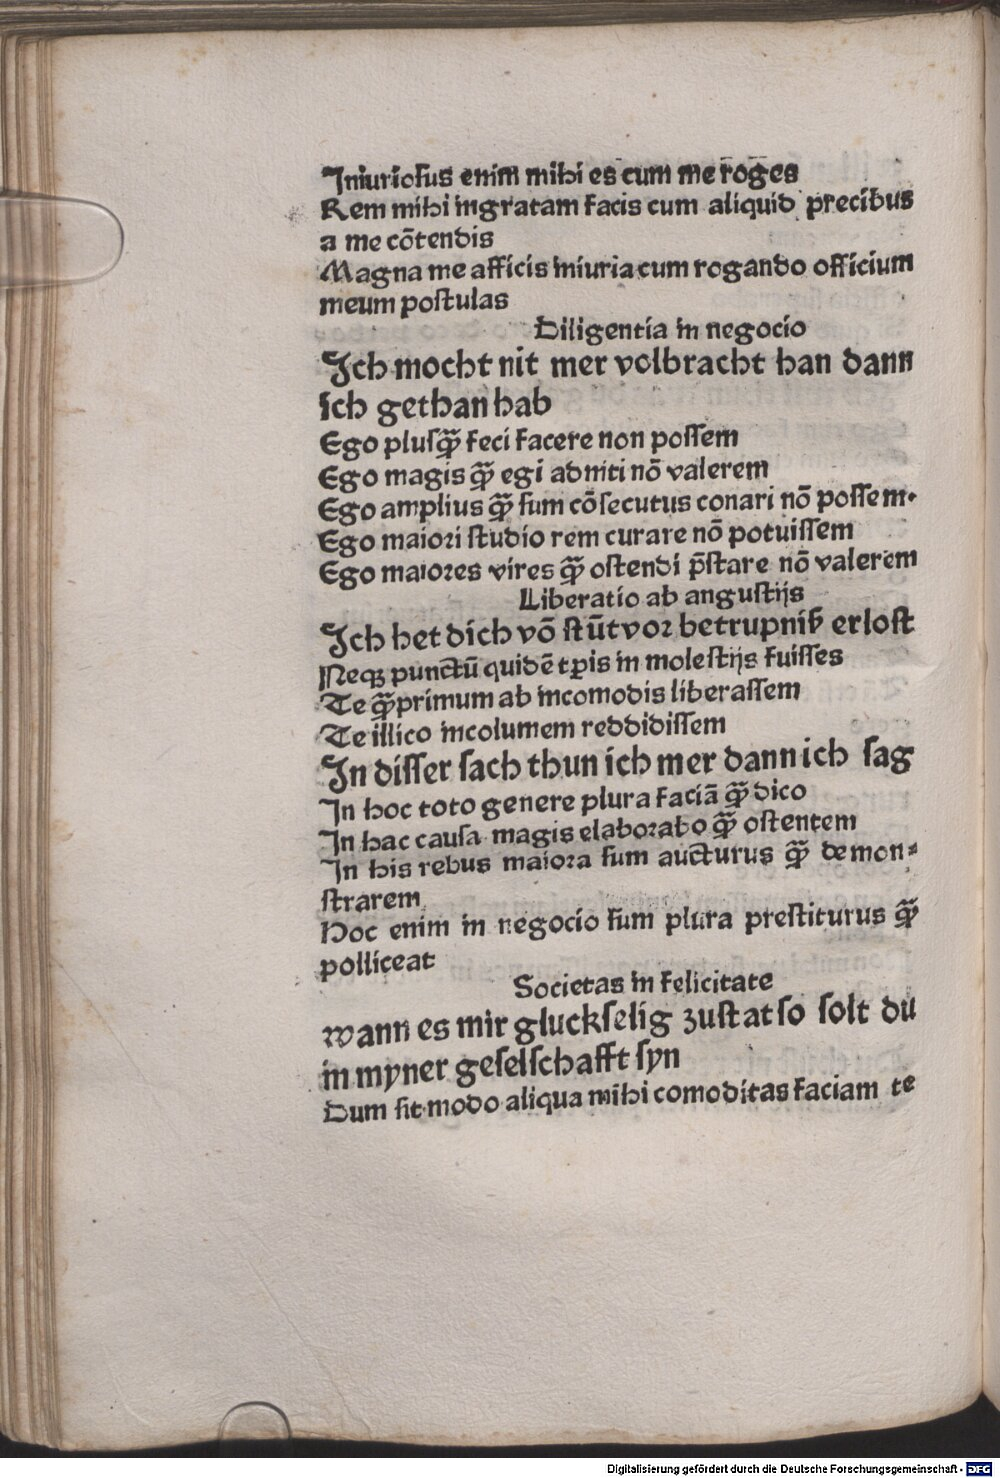 Iniuriosus enim mihi es cum me roges
Rem mihi ingratam facis cum aliquid precibus
a me cōtendis
Magna me afficis iniuria cum rogando officium
meum postulas
Diligentia in negocio
Ich mocht nit mer volbracht han dann
ich gethan hab
Ego plusꝙ̄ feci facere non possem
Ego magis ꝙ̄ egi adniti nō valerem
Ego amplius ꝙ̄ sum cōsecutus conari nō possem.
Ego maiori studio rem curare nō potuissem
Ego maiores vires ꝙ̄ ostendi p̄stare nō valerem
Liberatio ab angustijs
Ich het dich vō stūt vor betrupniß erlost
Neqꝫ punctū quidē tꝑis in molestijs fuisses
Te ꝙ̄primum ab incomodis liberassem
Te illico incolumem reddidissem
In disser sach thun ich mer dann ich sag
In hoc toto genere plura faciā ꝙ̄ dico
In hac causa magis elaborabo ꝙ̄ ostentem
In his rebus maiora sum aucturus ꝙ̄ demon⸗
strarem
Hoc enim in negocio sum plura prestiturus ꝙ̄
polliceat
Societas in felicitate
wann es mir gluckselig zustat so solt du
in myner geselschafft syn
Dum sit modo aliqua mihi comoditas faciam te
Digitalisierung gefördert durch die Deutsche Forschungsgemeinschaft - DFG